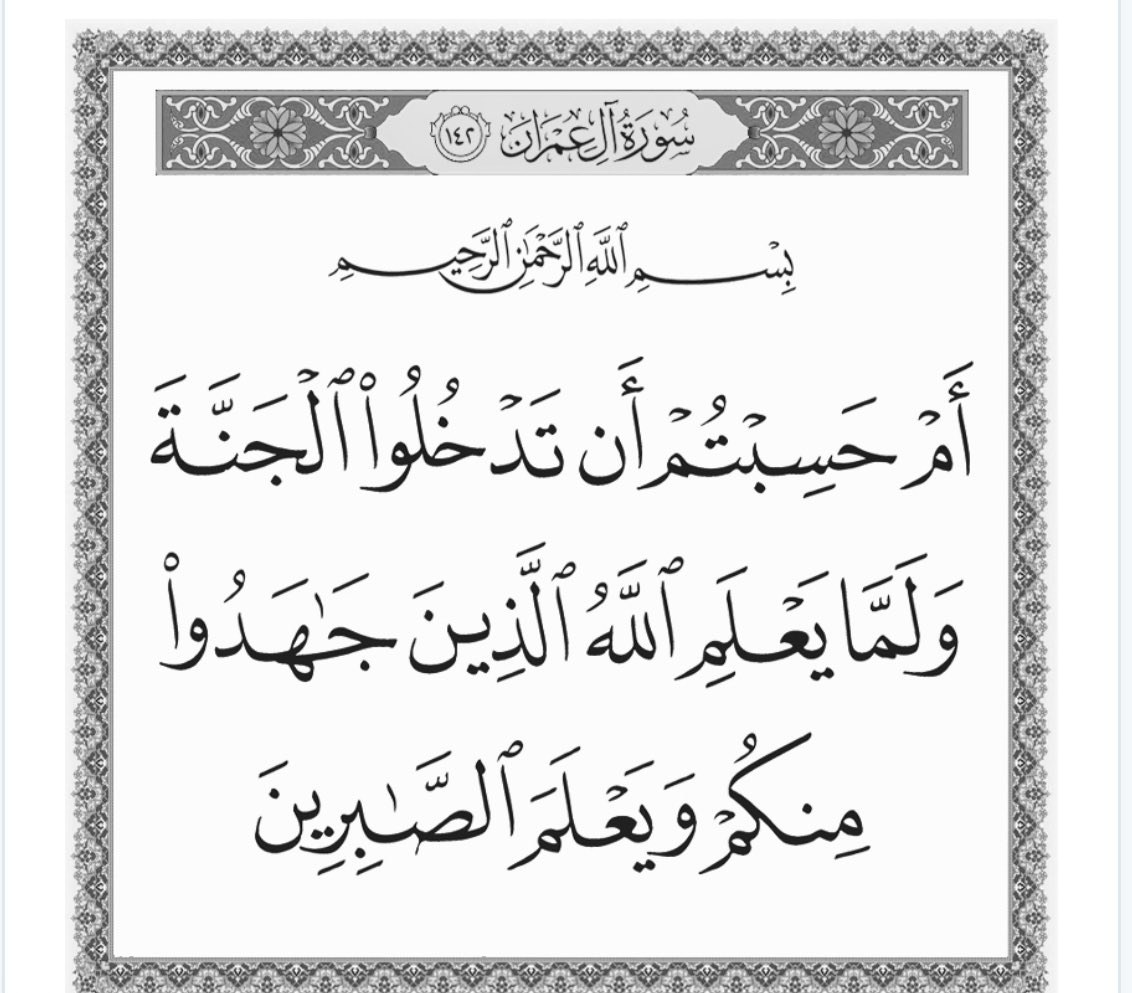 سُورَةُ آلِ عِمْرَانَ ١٤٢
بِسْمِ ٱللَّهِ ٱلرَّحْمَٰنِ ٱلرَّحِيمِ
أَمْ حَسِبْتُمْ أَن تَدْخُلُوا۟ ٱلْجَنَّةَ
وَلَمَّا يَعْلَمِ ٱللَّهُ ٱلَّذِينَ جَٰهَدُوا۟
مِنكُمْ وَيَعْلَمَ ٱلصَّٰبِرِينَ